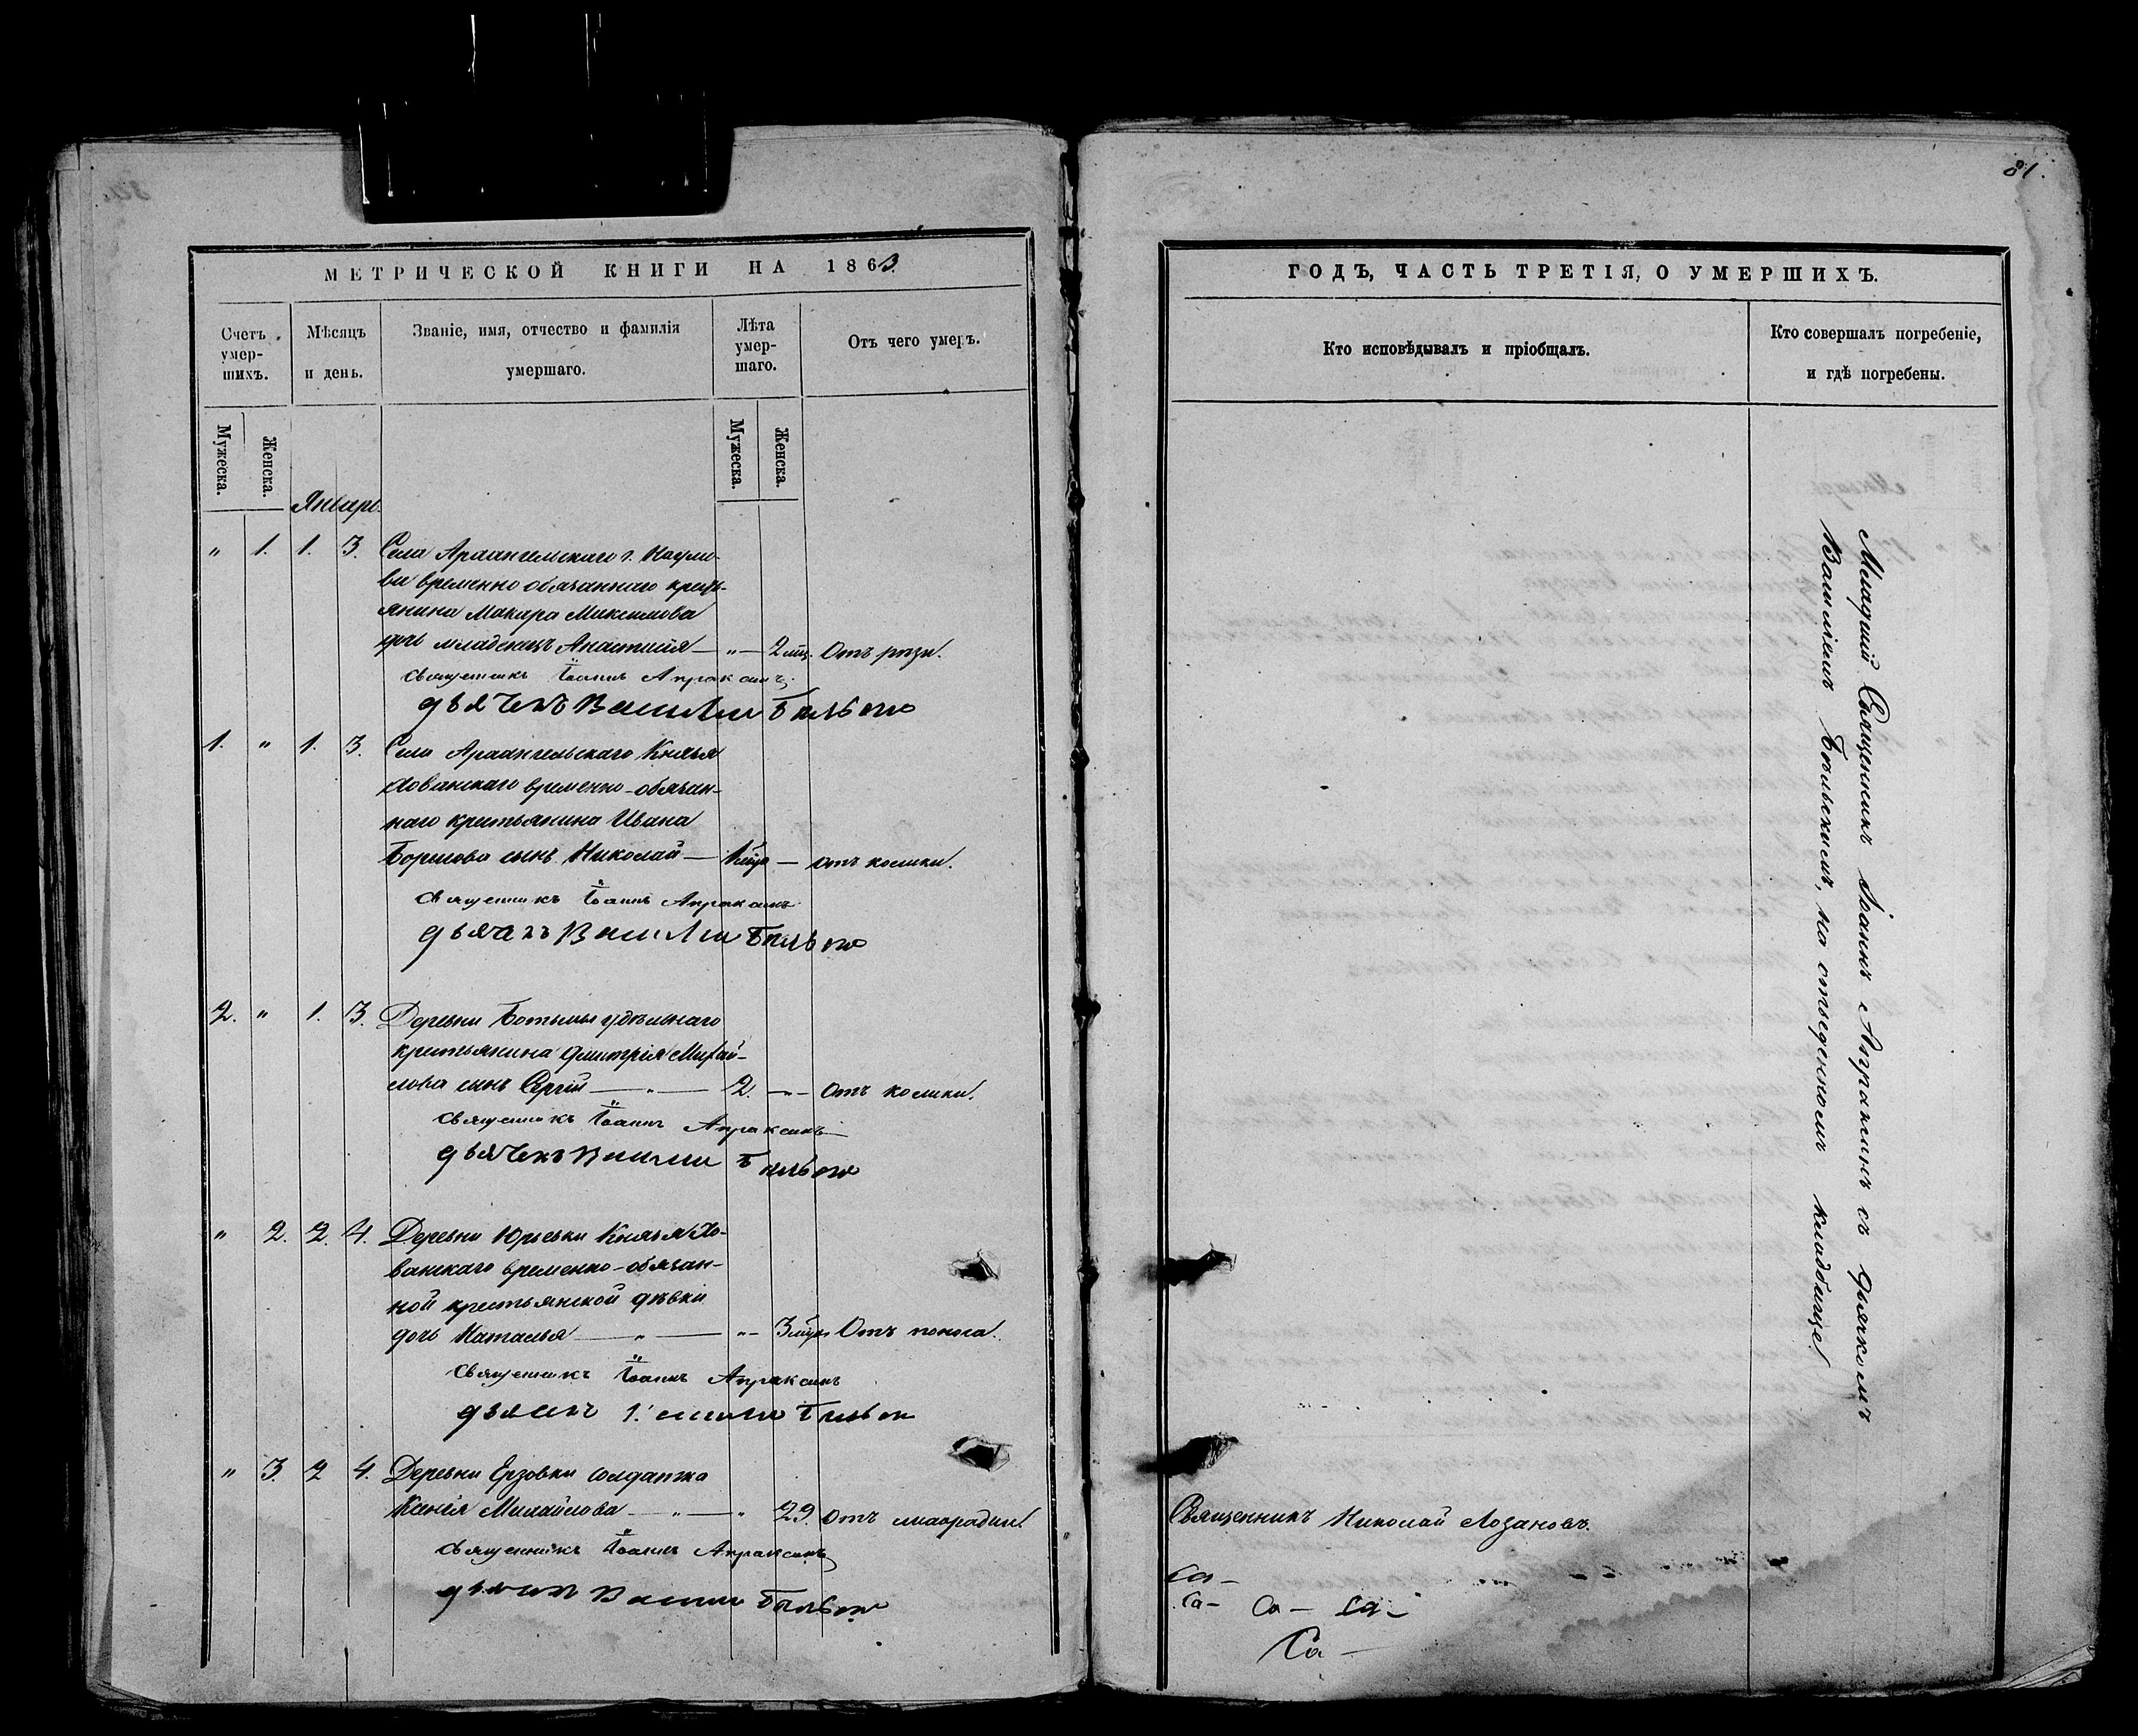 81.
МЕТРИЧЕСКОЙ КНИГИ НА 1863.
Счетъ умер-шихъ.
Мѣсяцъ и день.
Званіе, имя, отчество и фамилія умершаго.
Лѣта умер-шаго.
Отъ чего умеръ.
Мужеска.
Женска.
Мужеска.
Женска.
Январь.
" 1. 1. 3. Села Архангельскаго г. Науmo-
ва временно обязаннаго кресть-
янина Макара Максимова
дочь младенецъ Анастасія — " — 2 мѣс. Отъ рѣзи.
Священникъ Іоаннъ Апраксинъ
дьячекъ Василий Бѣльской
1. " 1. 3. Села Архангельскаго Князя
Хованскаго временно-обязан-
наго крестьянина Ивана
Борисова сынъ Николай — — отъ колики.
Священникъ Іоаннъ Апраксинъ
дьячекъ Василий Бѣльской
2. " 1. 3. Деревни Ботьмы удѣльнаго
крестьянина Дмитрія Михай-
лова сынъ Сергій — " — 2. — " — Отъ колики.
Священникъ Іоаннъ Апраксинъ
дьячекъ Василий Бѣльской
" 2. 2. 4. Деревни Юрьевки Князя Хо-
ванскаго временно-обязан-
ной крестьянской дѣвки
дочь Наталья — " — " — 3 мѣс. Отъ поноса.
Священникъ Іоаннъ Апраксинъ
дьячекъ Василий Бѣльской
" 3. 2 4. Деревни Ерзовки солдатка
Ксенія Михайлова — " — " 29. отъ лихорадки.
Священникъ Іоаннъ Апраксинъ
дьячекъ Василий Бѣльской
ГОДЪ, ЧАСТЬ ТРЕТІЯ, О УМЕРШИХЪ.
Кто исповѣдывалъ и пріобщалъ.
Кто совершалъ погребеніе,
и гдѣ погребены.
Младшій Священникъ Іоаннъ Апраксинъ съ дьячкомъ
Василіемъ Бѣльскимъ, на отведенномъ кладбище.
Священникъ Николай Лозановъ.
Са-
Са- Са- Са-
Са-